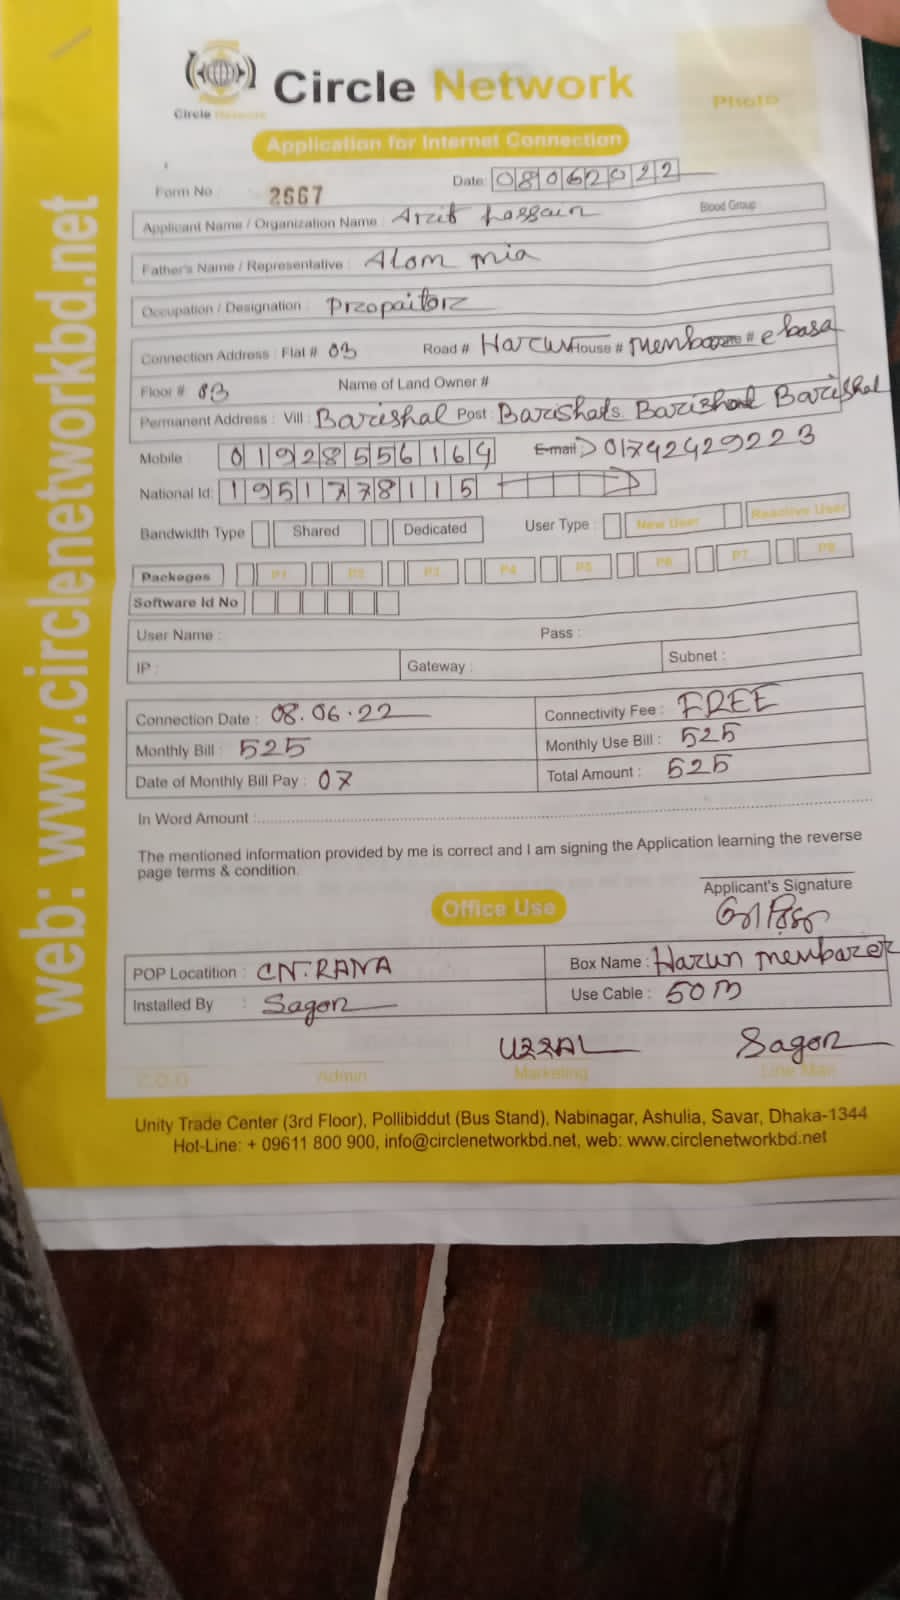 Circle Network
Circle Network
Photo
Application for Internet Connection
Form No : 2667
Date: 08062022
Applicant Name / Organization Name : Arif hossain
Blood Group
Father's Name / Representative : Alom mia
Occupation / Designation : Propaitor
Connection Address : Flat # 03 Road # Harun House # membarer # e basa
Floor # 03 Name of Land Owner #
Permanent Address : Vill : Barishal Post : Barishal Barishal Barishal
Mobile : 01928556164 E-mail 01742429223
National Id: 1951778115
Bandwidth Type Shared Dedicated User Type : New User Reactive User
Packeges P1 P2 P3 P4 P5 P6 P7 P8
Software Id No
User Name : Pass :
IP : Gateway : Subnet :
Connection Date : 08.06.22 Connectivity Fee : FREE
Monthly Bill : 525 Monthly Use Bill : 525
Date of Monthly Bill Pay : 07 Total Amount : 525
In Word Amount :
The mentioned information provided by me is correct and I am signing the Application learning the reverse
page terms & condition.
Applicant's Signature
Office Use
POP Locatition : CN.RANA Box Name : Harun membarer
Installed By : Sagor Use Cable : 50M
UZZAL Sagor
C.O.O Admin Marketing Line Man
Unity Trade Center (3rd Floor), Pollibiddut (Bus Stand), Nabinagar, Ashulia, Savar, Dhaka-1344
Hot-Line: + 09611 800 900, info@circlenetworkbd.net, web: www.circlenetworkbd.net
web: www.circlenetworkbd.net